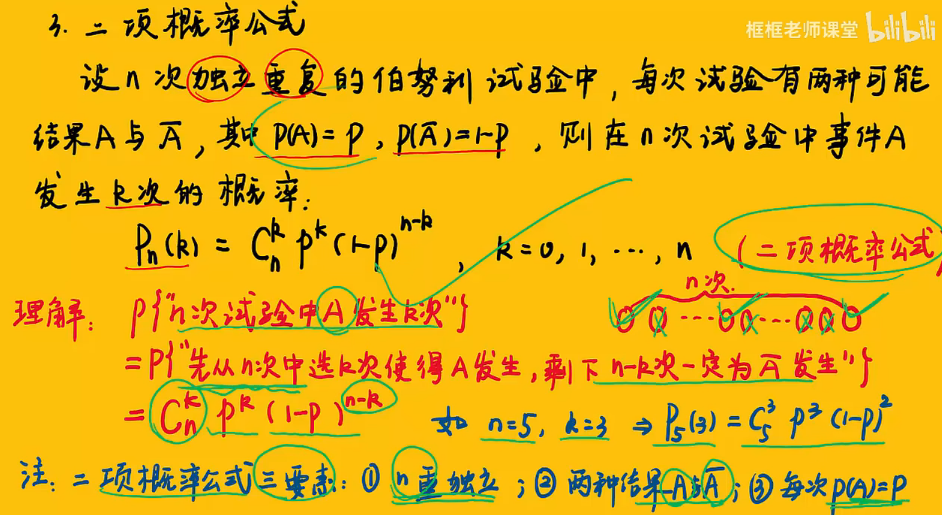 框框老师课堂 bilibili
3. 二项概率公式
设n次独立重复的伯努利试验中,每次试验有两种可能
结果A与Ā,其中P(A)=p,P(Ā)=1-p,则在n次试验中事件A
发生k次的概率:
Pₙ(k) = Cₙᵏ pᵏ (1-p)ⁿ⁻ᵏ , k=0, 1, ⋯, n (二项概率公式)
n次
理解: P{"n次试验中A发生k次"}
=P{"先从n次中选k次使得A发生,剩下n-k次一定为Ā发生"}
= Cₙᵏ pᵏ (1-p)ⁿ⁻ᵏ 如 n=5, k=3 ⇒ P₅(3) = C₅³ p³ (1-p)²
注: 二项概率公式三要素: ① n重独立; ② 两种结果A与Ā; ③ 每次p(A)=p